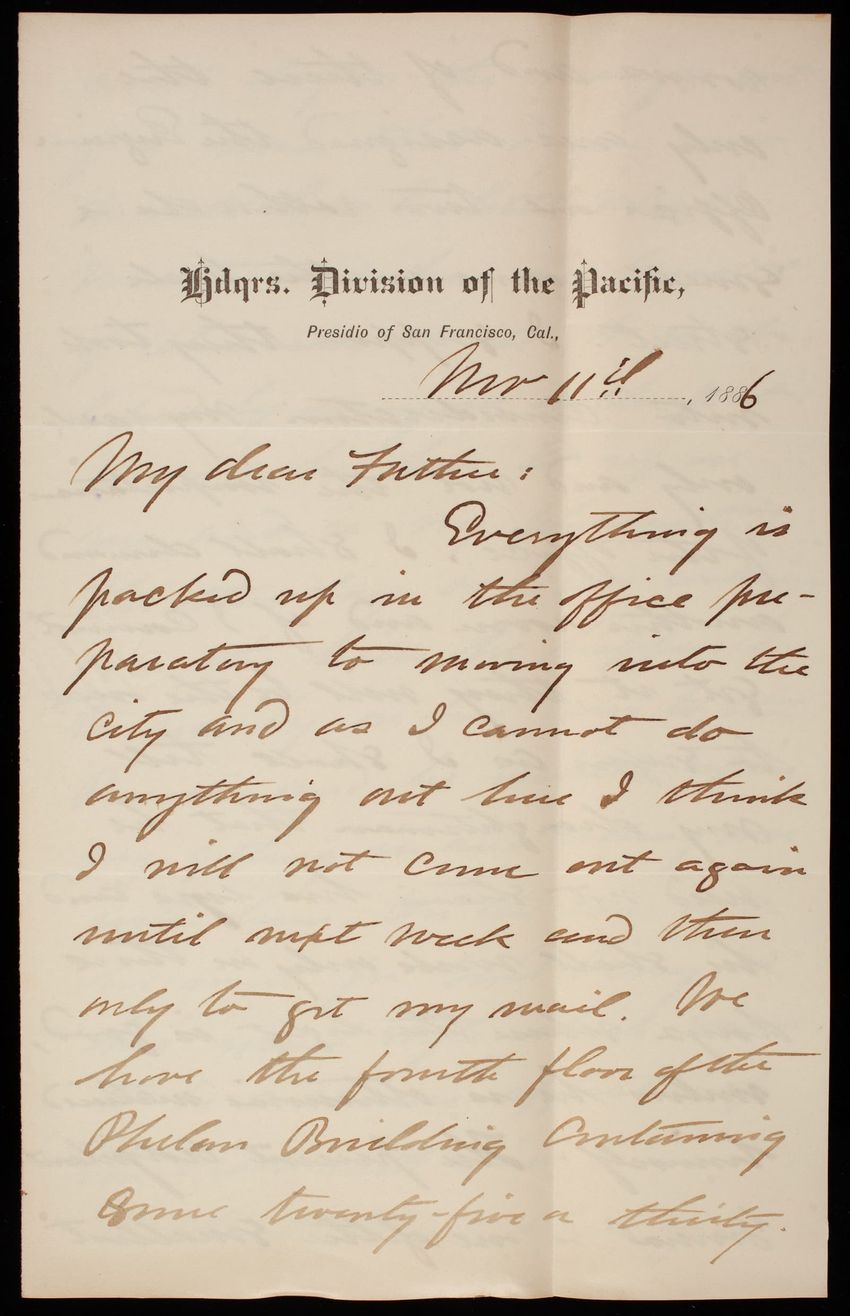 Hdqrs. Division of the Pacific,
Presidio of San Francisco, Cal.,
Nov 11th, 1886
My dear Father:
Everything is
packed up in the office pre-
paratory to moving into the
city and as I cannot do
anything out here I think
I will not come out again
until next week and then
only to get my mail. We
have the fourth floor of the
Phelan Building containing
some twenty-five or thirty.